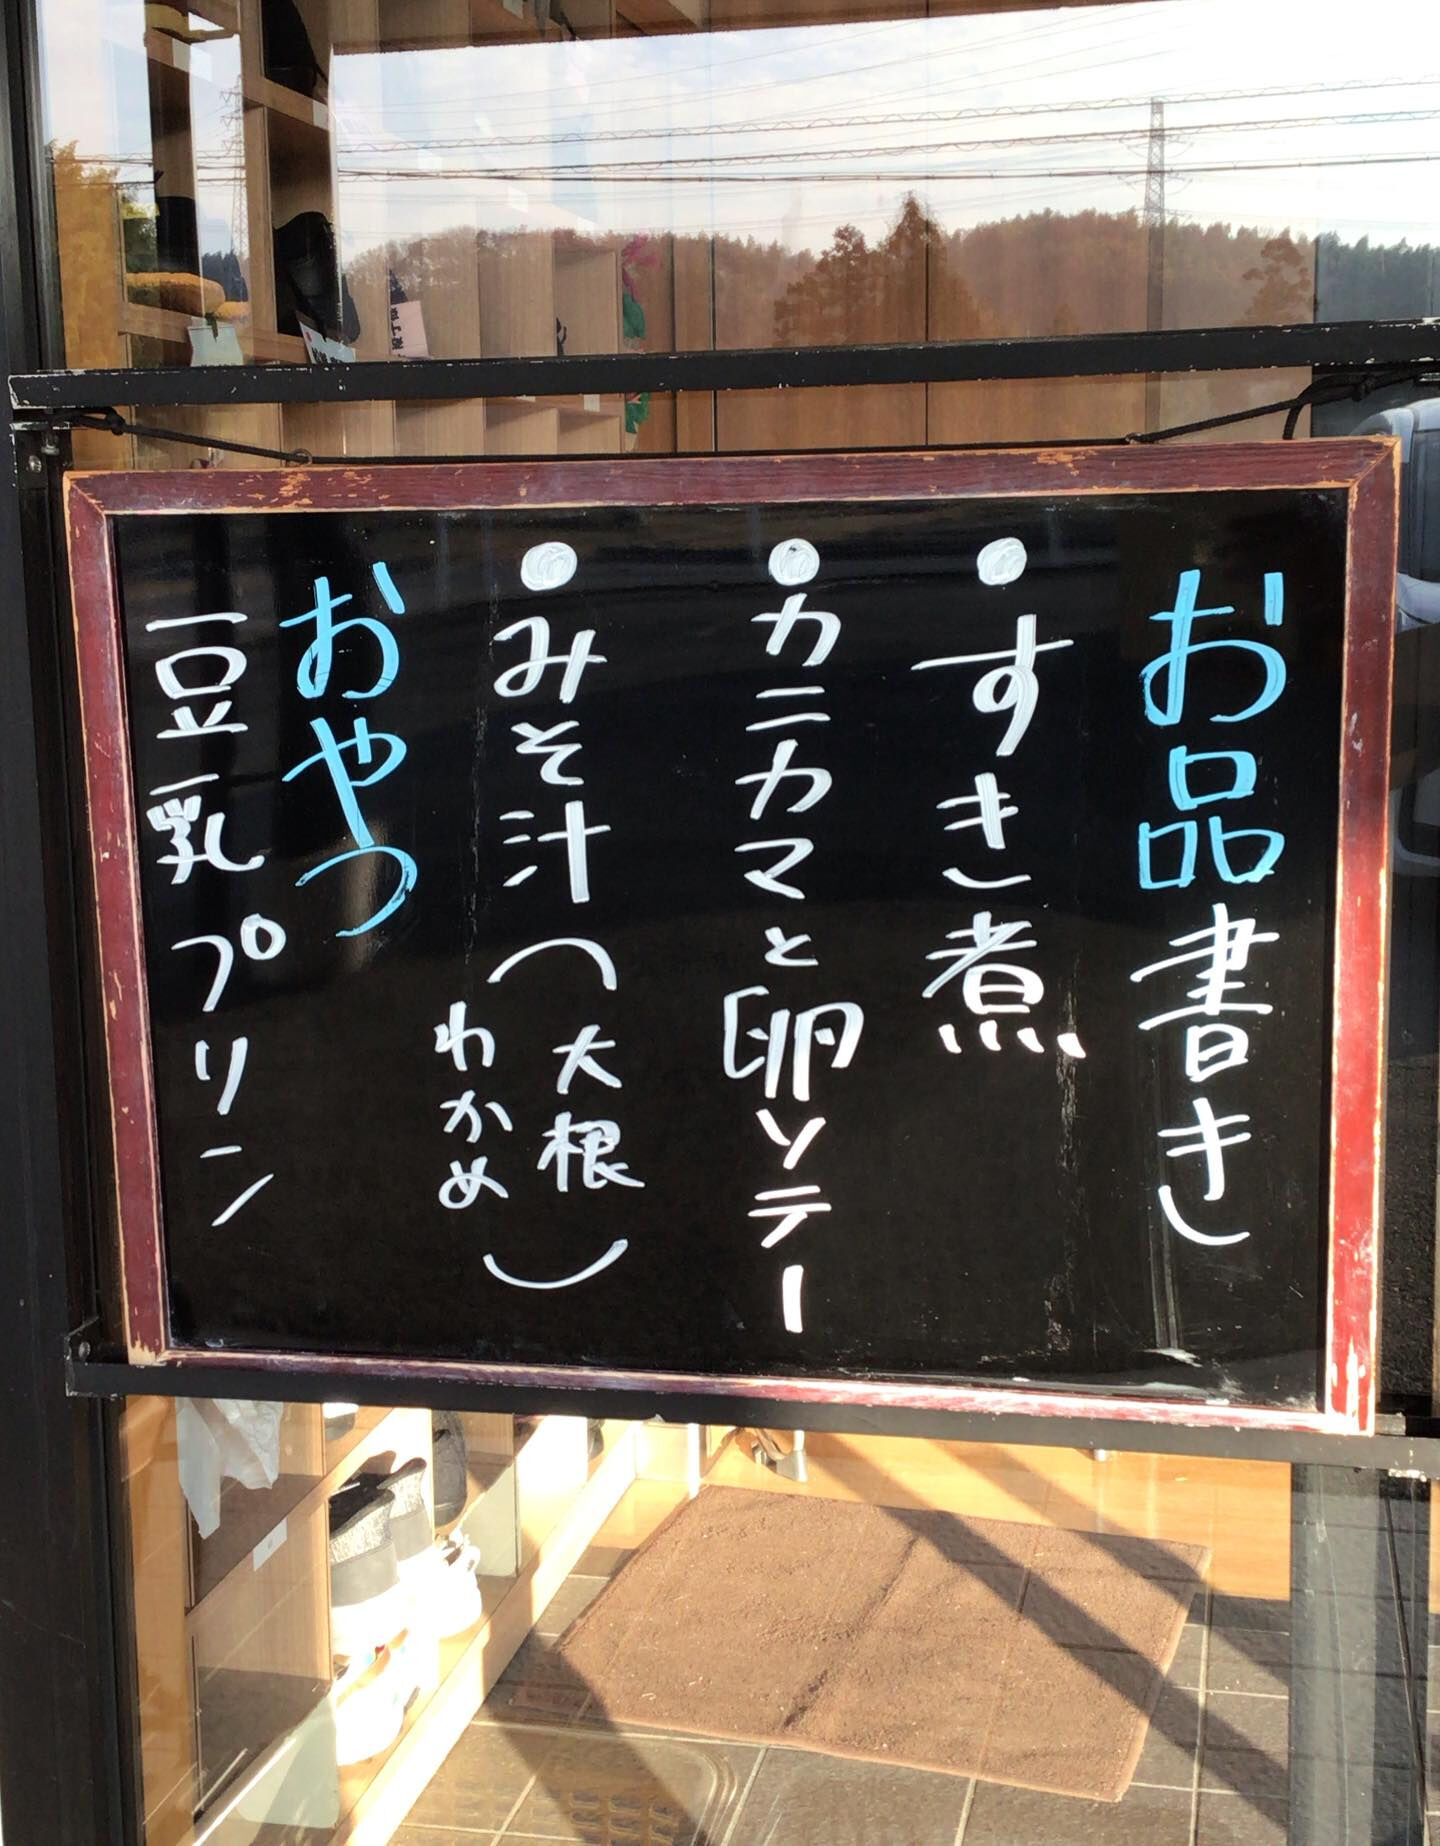 お品書き
●すき煮
●カニカマと卵ソテー
●みそ汁(大根
わかめ)
おやつ
豆乳プリン